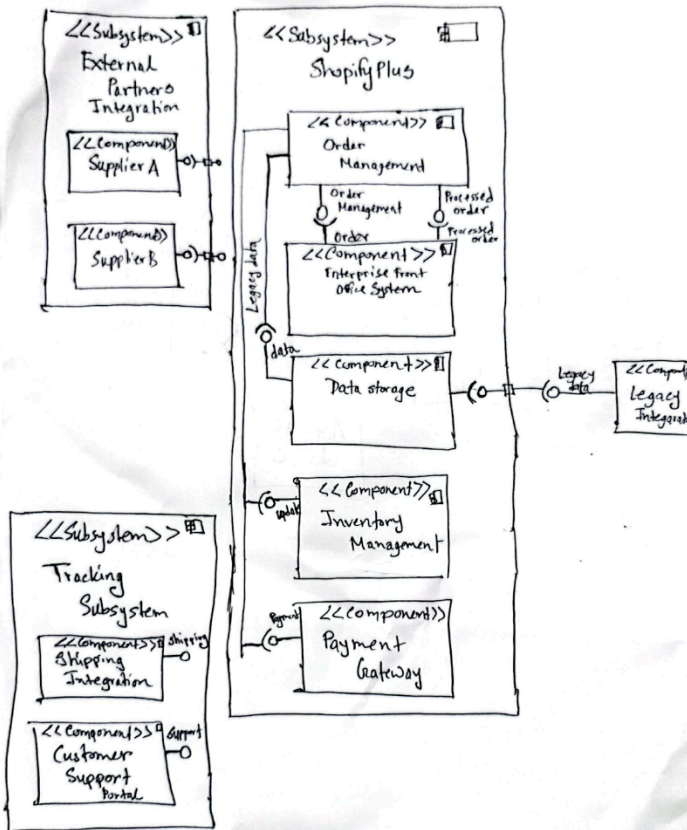 <<Subsystem>>
External
Partners
Integration
<<Component>>
Supplier A
<<Component>>
Supplier B
<<Subsystem>>
ShopifyPlus
<<Component>>
Order
Management
Order
Management
Order
Processed
order
Processed
order
<<Component>>
Enterprise Front
Office System
Legacy data
data
<<Component>>
Data storage
Legacy
data
Legacy
<<Component>>
Inventory
Management
Payment
<<Component>>
Payment
Gateway
<<Subsystem>>
Tracking
Subsystem
<<Component>>
Shipping
Integration
Shipping
<<Component>>
Customer
Support
Portal
Support